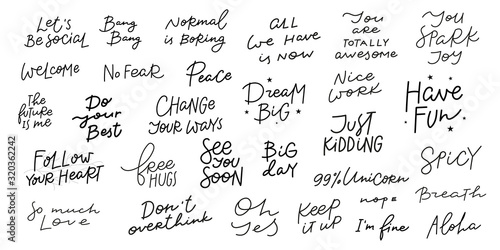 Let's
Be Social
Bang
Bang
Normal
is Boring
All
We Have
is Now
You
are
TOTALLY
awesome
You
SPARK
JOY
Welcome
No Fear
Peace
DReam
BiG
Nice
WORK
Have
Fun
The
future
is me
Do
your
Best
CHANGe
YOUR WAYS
JUST
KiDDiNG
FoLLoW
YOUR HeART
free
HUGS
See
YOU
SOON
BiG
day
99% UNicoRN
SPiCY
So much
Love
Don't
overthink
Oh
yes
KeeP
iT UP
nope
I'm fine
Breath
Aloha
Adobe Stock | #320362242